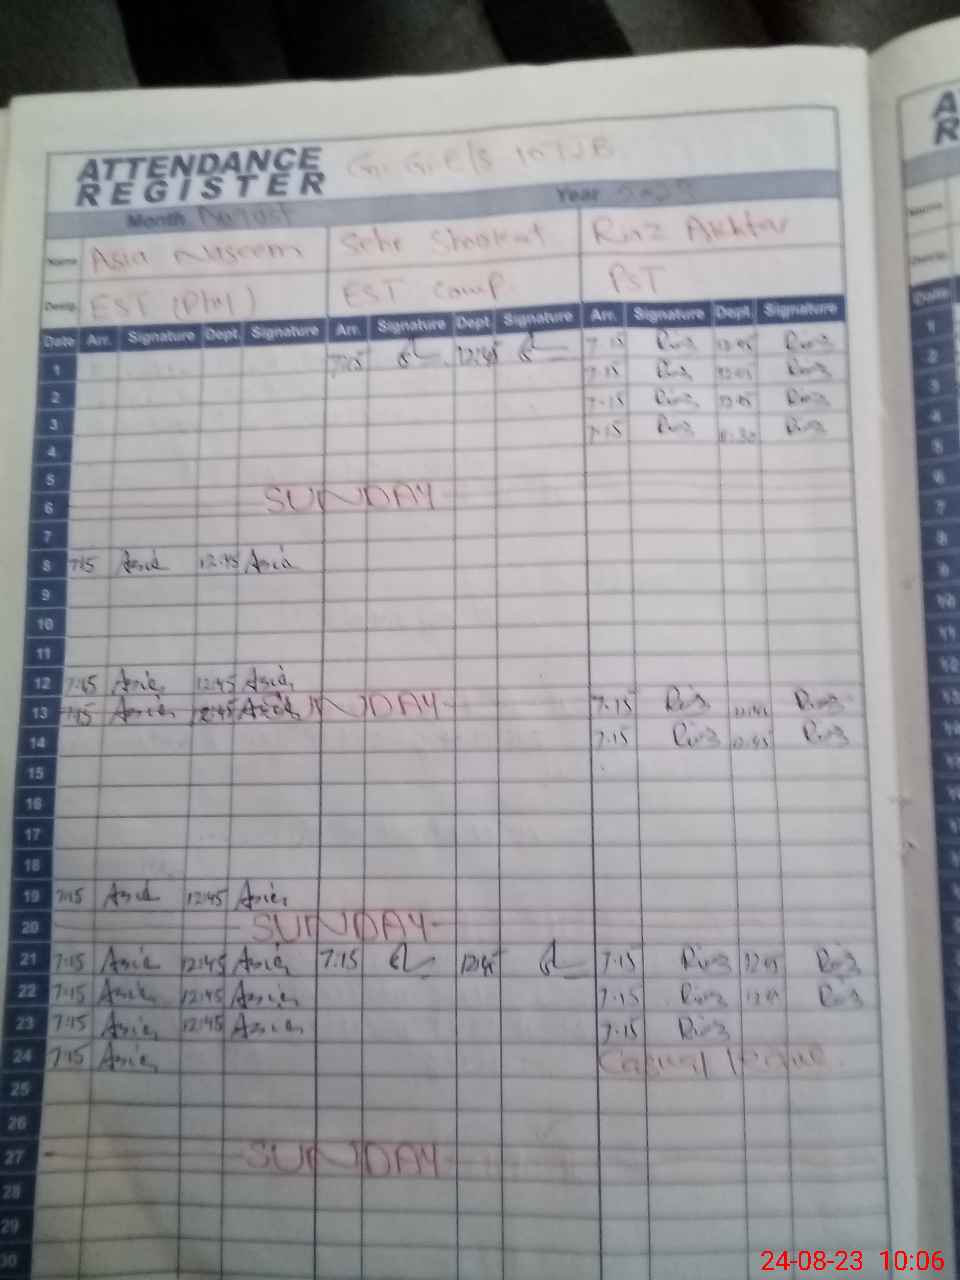 ATTENDANCE
REGISTER
G.G.E/S 107JB
Month August Year 2023
Name Asia Naseem Sehr Shaukat Riaz Akhtar
Desig. EST (Phy) EST Comp. PST
Date Arr. Signature Dept. Signature Arr. Signature Dept. Signature Arr. Signature Dept. Signature
1 7:15 12:45 7.15 Riaz 12:45 Riaz
2 7.15 Riaz 12:45 Riaz
3 7.15 Riaz 12:45 Riaz
4 7.15 Riaz 11.30 Riaz
5
6 SUNDAY
7
8 7:15 Asia 12:45 Asia
9
10
11
12 7:15 Asia 12:45 Asia
13 7:15 Asia 12:45 Asia SUNDAY 7.15 Riaz 12:45 Riaz
14 7.15 Riaz 12:45 Riaz
15
16
17
18
19 7:15 Asia 12:45 Asia
20 SUNDAY
21 7:15 Asia 12:45 Asia 7:15 12:45 7.15 Riaz 12:45 Riaz
22 7:15 Asia 12:45 Asia 7.15 Riaz 12:45 Riaz
23 7:15 Asia 12:45 Asia 7.15 Riaz
24 7:15 Asia Casual Leave
25
26
27 SUNDAY
28
29
30
24-08-23 10:06